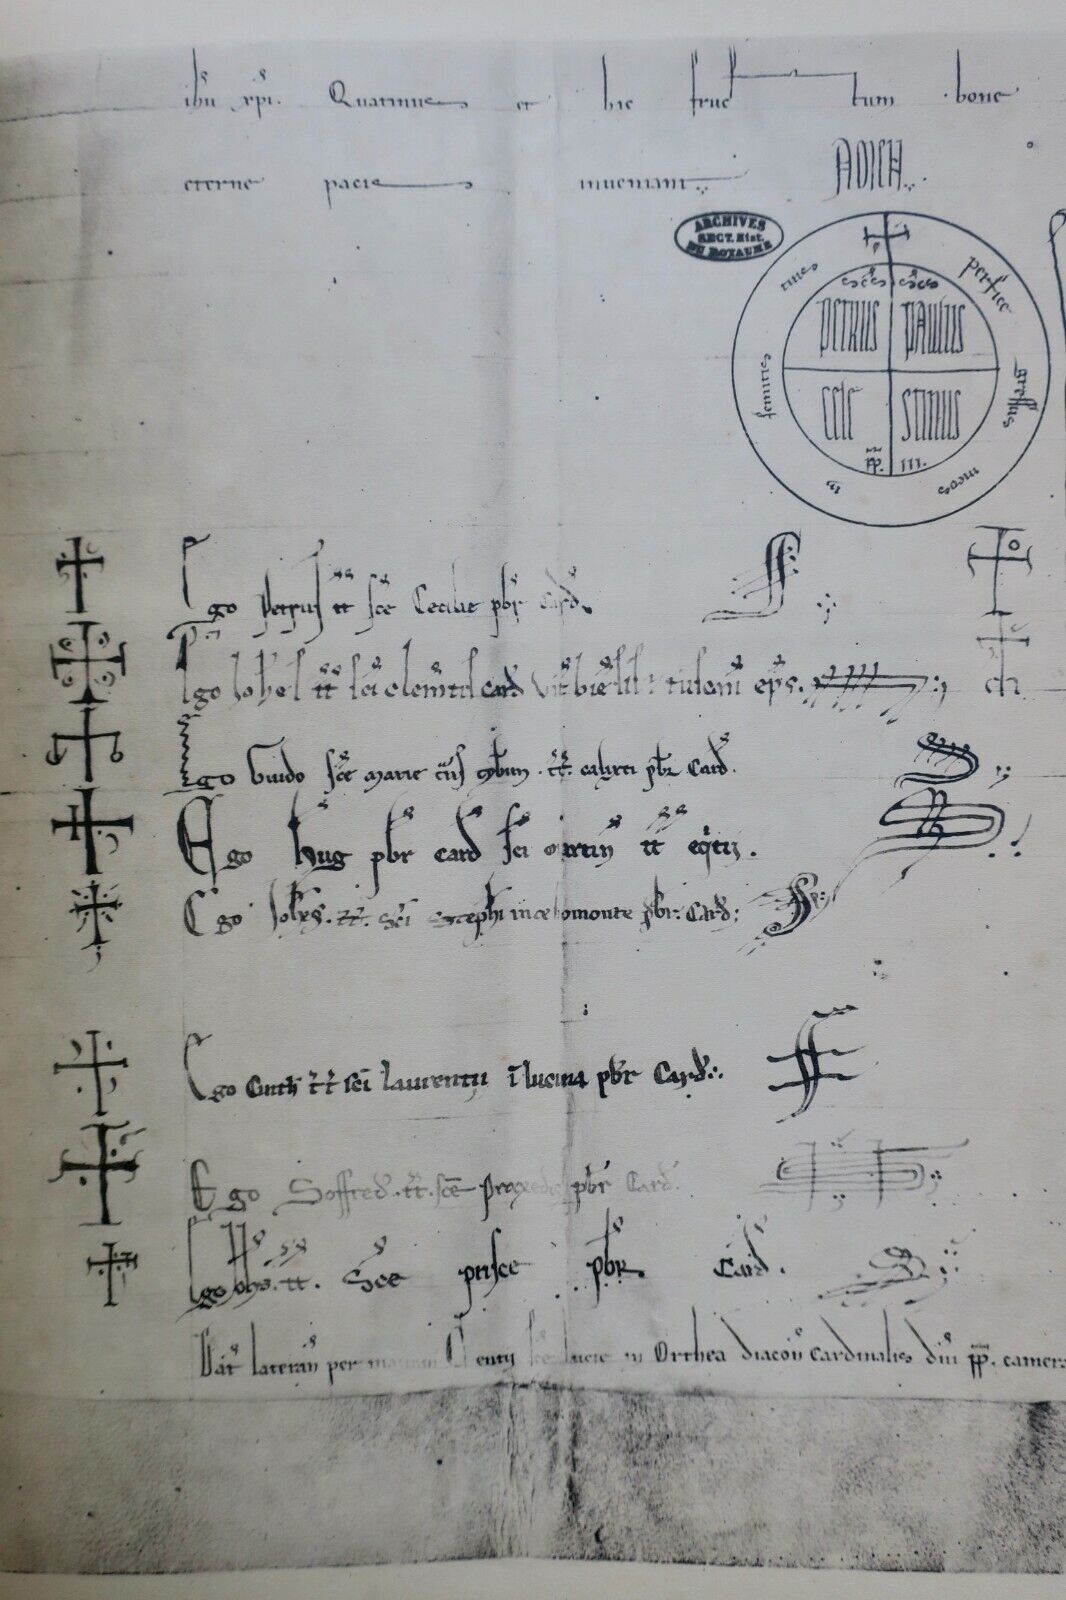 ihu xpi. Quatinus et hic fruc tum bone
eterne pacis inueniant. AMEN.
ARCHIVES
SECT. Hist.
DU ROYAUME
perfice gressus meos in semitis tuis
scs PETRUS scs PAULUS
CELE STINUS
PP. III.
Ego Petrus tt sce Cecilie pbr Card.
Ego Iohes tt sci clementis card tusculan eps.
Ego Guido sce marie tbim. tt. calixti pbr Card.
Ego hug pbr card sci martin tt eqitii.
Ego Iohes. tt. sci stephi in celiomonte pbr. Card;
Ego Cinth tt sci laurentii i lucina pbr Card.
Ego Soffred. tt. sce praxedis pbr Card.
Ego Iohs. tt. Sce prisce pbr. Card.
Dat lateran per manum Centii sce lucie in Orthea diaconi Cardinalis dni pp. camer